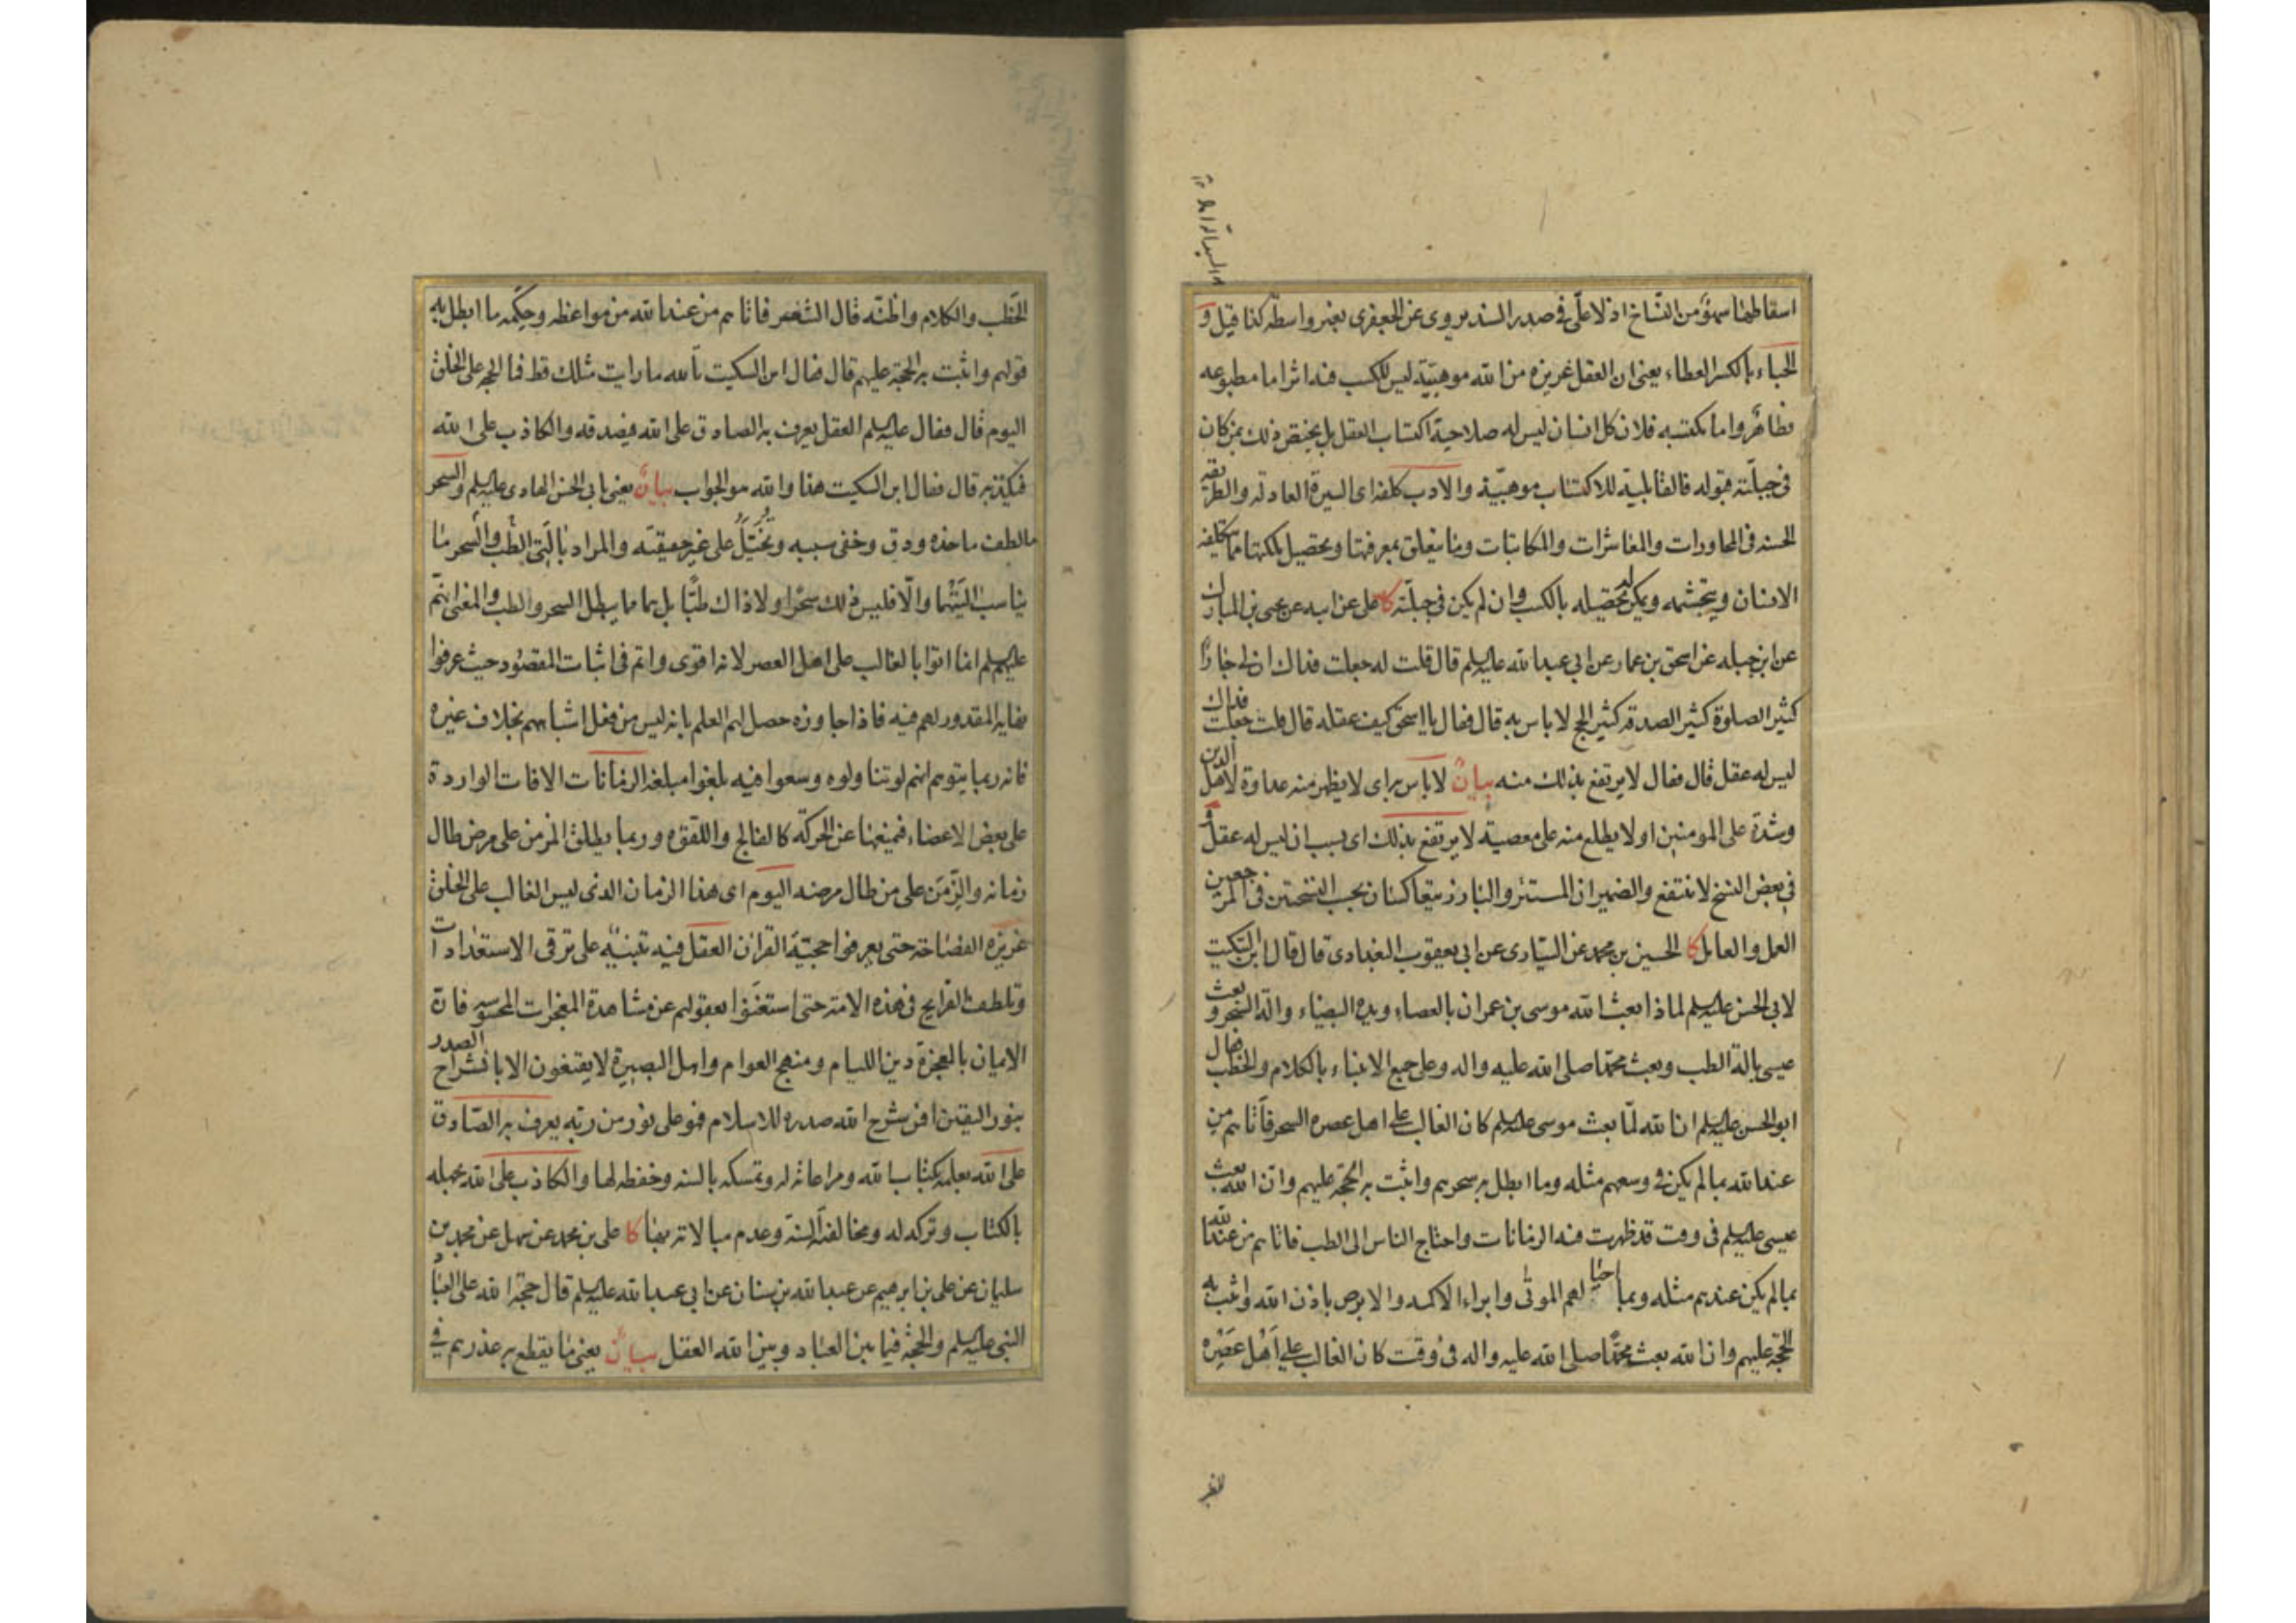 اسقاطها سهو من النساخ اذ لا على في صدر السند يروى عن الجعفرى بغير واسطة كذا قيل و
الحباء بالكسر العطاء يعنى ان العقل غريزه من الله موهبيّة ليس للكسب فيه اثر اما مطبوعه
فظاهر واما مكتسبه فلان كل انسان ليس له صلاحية اكتساب العقل بل يختص ذلك بمن كان
في جبلّته قبوله فالقابلية للاكتساب موهبيّة والادب كلفه اى السيرة العادله والطريقه
الحسنه في المحاورات والمعاشرات والمكاتبات وما يتعلق بمعرفتها وتحصيل ملكتها مما تكلفه
الانسان ويتجشمه ويمكن له تحصيله بالكسب وان لم يكن في جبلّته كا على عن ابيه عن يحيى بن المبارك
عن ابن جبله عن اسحق بن عمار عن ابى عبدالله عليه السلم قال قلت له جعلت فداك ان لى جارًا
كثير الصلوة كثير الصدقه كثير الحج لا باس به قال فقال يا اسحق كيف عقله قال قلت جعلت فداك
ليس له عقل قال فقال لا يرتفع بذلك منه بيان لا باس به اى لا يظهر منه عداوة لاهل الدين
وشدة على المومنين او لا يطلع منه على معصية لا يرتفع بذلك اى بسبب ان ليس له عقل و
في بعض النسخ لا ينتفع والضميران المستتر والبارز يتعاكسان بحسب النسختين في المرجعين
العمل والعامل كا الحسين بن محمد عن السيّارى عن ابى يعقوب البغدادى قال قال ابن السكيت
لابى الحسن عليه السلم لماذا بعث الله موسى بن عمران بالعصا ويده البيضاء والة السحر و بعث
عيسى بالة الطب وبعث محمدًا صلى الله عليه واله وعلى جميع الانبياء بالكلام والخطب فقال
ابو الحسن عليه السلم ان الله لمّا بعث موسى عليه السلم كان الغالب على اهل عصره السحر فأتاهم من
عند الله بما لم يكن في وسعهم مثله وما ابطل به سحرهم واثبت به الحجّة عليهم وان الله بعث
عيسى عليه السلم في وقت قد ظهرت فيه الزمانات واحتاج الناس الى الطب فاتاهم من عند الله
بما لم يكن عندهم مثله وبما احيا لهم الموتى وابراء الاكمه والابرص باذن الله واثبت به
الحجّة عليهم وان الله بعث محمدًا صلى الله عليه واله في وقت كان الغالب على اَهْل عَصْرِه
الخُطَب والكلام واظنّه قال الشعر فاتاهم من عند الله من مواعظه وحِكَمه ما ابطل به
قولهم واثبت به الحجّة عليهم قال فقال ابن السكيت تالله ما رايت مثلك قط فما الحجه على الخلق
اليوم قال فقال عليه السلم العقل يعرف به الصادق على الله فيصدقه والكاذب على الله
فيكذبه قال فقال ابن السكيت هذا والله هو الجواب بيانٌ يعنى بابى الحسن الهادى عليه السلم والسحر
ما لطف ماخذه ودق وخفى سببه وتُخُيّلَ على غير حقيقته والمراد بالَتى الطّب والسحر ما
يناسب اليَتَهُما والّا فليس ذلك سحرًا ولا ذاك طبًّا بل هما ما يبطل السحر والطب والمعنى انهم
عليهم السلم انما اتوا بالغالب على اهل العصر لانه اقوى واتم في اثبات المقصود حيث عرفوا
نهاية المقدور لهم فيه فاذا جاوزه حصل لهم العلم بانه ليس من فعل اشباههم بخلاف غيره
فانه ربما يتوهم انهم لو تناولوه وسعوا فيه بلغوا مبلغه الزمانات الافات الواردة
على بعض الاعضاء فيمنعها عن الحركة كالفالج واللقوه وربما يطلق المزمن على مرض طال
زمانه والزّمن على من طال مرضه اليوم اى هذا الزمان الذى ليس الغالب على الخلق
غريزه الفصاحة حتى يعرفوا حجيّة القران العقل فيه تنبيهٌ على ترقى الاستعدادات
وتلطف القرايح في هذه الامة حتى استغنوا بعقولهم عن مشاهدة المعجزات المحسوسه فان
الايمان بالمعجزة دين اللئام ومنهج العوام واهل البصيرة لا يقنعون الا بانشراح الصدر
بنور اليقين افمن شرح الله صدره للاسلام فهو على نور من ربّه يعرف به الصّادق
على الله بعلمه بكتاب الله ومراعاته له وتمسكه بالسنه وحفظه لها والكاذب على الله بجهله
بالكتاب وتركه له ومخالفته السنّة وعدم مبالاته بها كا على بن محمد عن سهل عن محمد بن
سليمان عن على بن ابرهيم عن عبدالله بن سنان عن ابى عبدالله عليه السلم قال حجّة الله على العباد
النبى عليه السلم والحجّة فيما بين العباد وبين الله العقل بيانٌ يعنى ما يقطع به عذرهم في